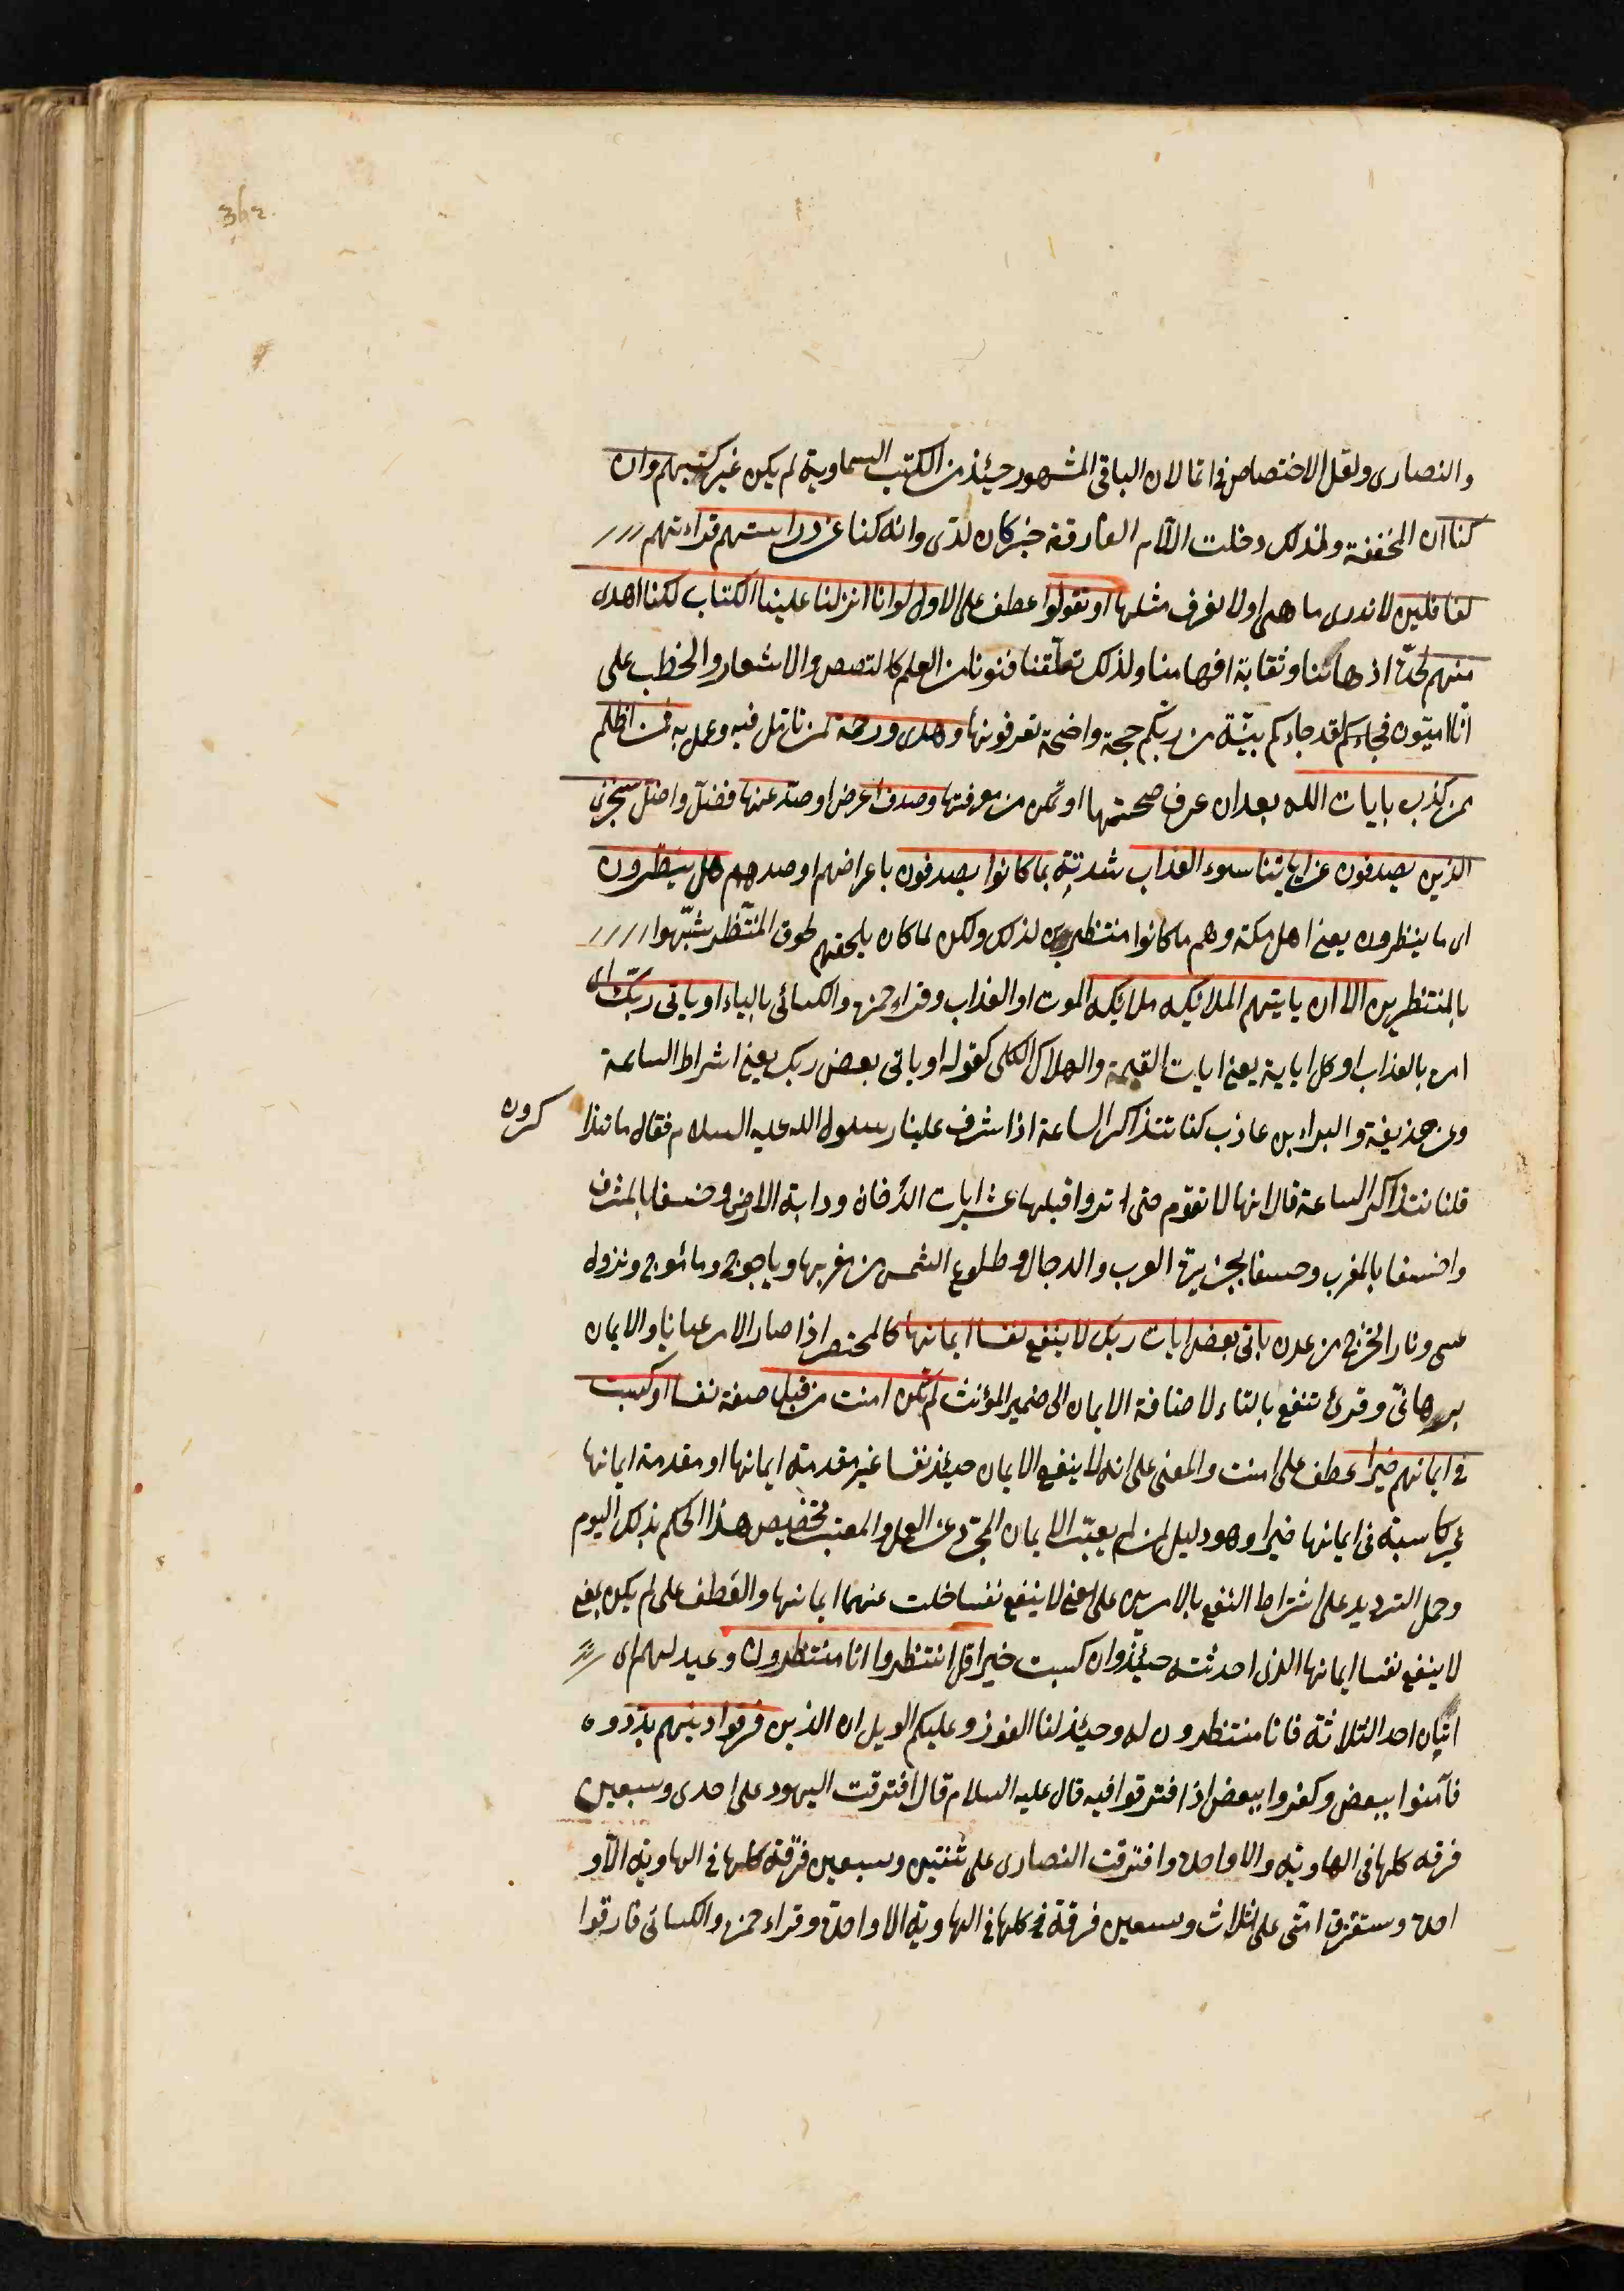 362
والنصارى ولعل الاختصاص في انما لان الباقي المشهور حينئذ من الكتب السماوية لم يكن غير كتبهم وان
كنا ان المخففة ولذلك دخلت اللام الفارقة خبر كان لدى وانه كنا عن دراستهم قراءتهم
لغافلين لا ندرى ما هى او لا نعرف مثلها او تقولوا عطف على الاول لوانا انزلنا علينا الكتاب لكنا اهدى
منهم لحدة اذهاننا وثقابة افهامنا ولذلك تعلقنا فنونا من العلم كالقصص والاشعار والخطب على
انا اميون فجاءكم لقد جاءكم بينة من ربكم حجة واضحة تعرفونها وهدى ورحمة لمن تامل فيه وعمل به فمن اظلم
ممن كذب بايات الله بعد ان عرف صحتها او تمكن من معرفتها وصدف اعرض او صد عنها فضل واضل سنجزى
الذين يصدفون عن اياتنا سوء العذاب شدته بما كانوا يصدفون باعراضهم او صدهم هل ينظرون
اى ما ينظرون يعنى اهل مكة وهم ما كانوا منتظرين لذلك ولكن لما كان يلحقهم لحوق المنتظر شبهوا
بالمنتظرين الا ان ياتيهم الملائكه ملائكه الموت او العذاب وقراء حمزه والكسائى بالياء او ياتى ربك اى
امره بالعذاب او كل اياية يعنى ايات القيمة والهلاك الكلى كقوله او ياتى بعض ربك يعنى اشراط الساعة
وعن حذيفة والبراء بن عاذب كنا نتذاكر الساعة اذا شرف علينا رسول الله عليه السلام فقال ما تذا
كرون
قلنا نتذاكر الساعة قال انها لا تقوم حتى تروا قبلها عشر ايات الدخان ودابة الارض وخسفا بالمشرف
واخسفا بالمغرب وخسفا بجزيرة العرب والدجال وطلوع الشمس من مغربها وياجوج وماجوج ونزول
عسى ونار الخرج من عدن ياتى بعض ايات ربك لا ينفع نفسا ايمانها كالمحتضر اذا صار الامر عيانا والايمان
برهانى وقرئ تنفع بالتاء لاضافة الايمان الى ضمير المؤنث لم تكن امنت من قبل صفة نفسا او كسبت
فى ايمانهم خيرا عطف على امنت والمعنى على انه لا ينفع الايمان حينئذ نفسا غير مقدمة ايمانها او مقدمة ايمانها
غير كاسبة فى ايمانها خيرا وهو دليل لمن لم يعتبر الايمان المجرد عن العمل والمعتبر تخصيص هذا الحكم بذلك اليوم
وحمل الترديد على اشتراط النفع بالامرين على معنى لا ينفع نفسا خلت عنهما ايمانها والعطف على لم يكن بمعنى
لا ينفع نفسا ايمانها الذى احدثته حينئذ وان كسبت خيرا قل انتظروا انا منتظرون وعيد لهم اى
اتيان احد الثلاثة فانا منتظرون له وحينئذ لنا الفوز وعليكم الويل ان الذين فرقوا دينهم بددوه
فآمنوا ببعض وكفروا ببعض اذ افترقوا فيه قال عليه السلام قال افترقت اليهود على احدى وسبعين
فرقه كلها فى الهاويه والا واحدة وافترقت النصارى على ثنتين وسبعين فرقة كلها فى الهاوية الا و
احدة وستفترق امتى على ثلاث وسبعين فرقة فى كلها فى الهاوية الا واحدة وقراء حمزه والكسائى فارقوا